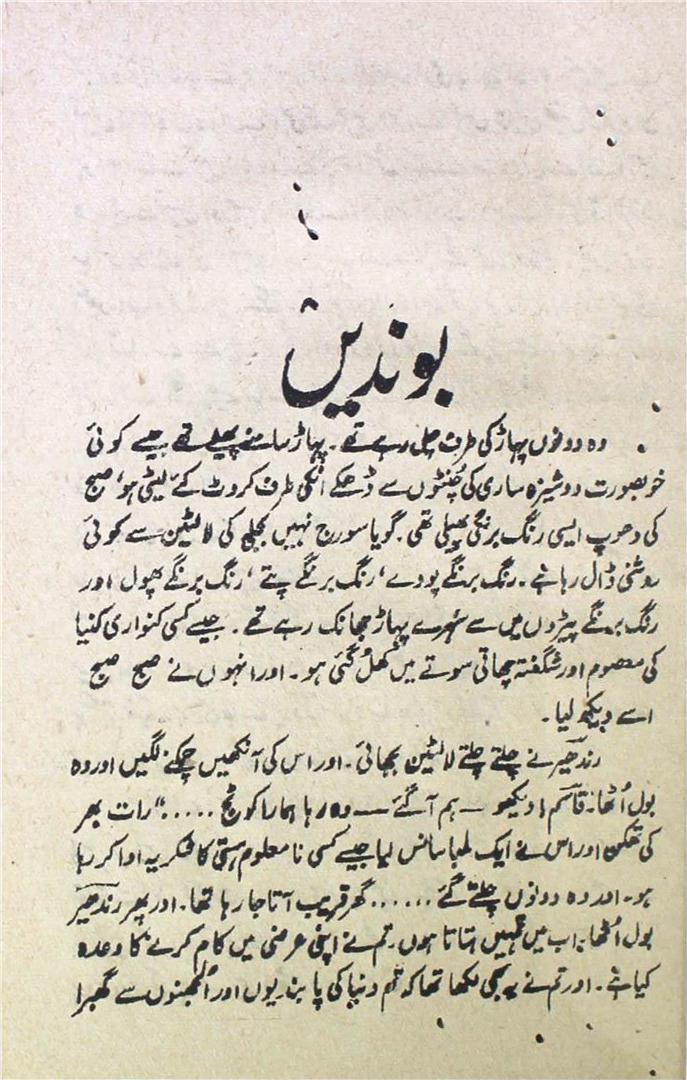 بوندیں
وہ دونوں پہاڑ کی طرف چل رہے تھے۔ پہاڑ سامنے پھیلے تھے جیسے کوئی
خوبصورت دوشیزہ ساری کی چُنٹوں سے ڈھکے انکی طرف کروٹ کئے لیٹی ہو، صبح
کی دھوپ ایسی رنگ برنگی پھیلی تھی۔ گویا سورج نہیں بجلی کی لالٹین سے کوئی
روشنی ڈال رہا ہے۔ رنگ برنگے پودے، رنگ برنگے پتے، رنگ برنگے پھول اور
رنگ برنگے پیڑوں میں سے سنہرے پہاڑ جھانک رہے تھے۔ جیسے کسی کنواری کنیا
کی معصوم اور شگفتہ چھاتی سوتے میں کھُل گئی ہو۔ اور انہوں نے صبح صبح
اسے دیکھ لیا۔
رندھیر نے چلتے چلتے لالٹین بجھائی۔ اور اس کی آنکھیں چمکنے لگیں اور وہ
بول اُٹھا۔ قاسم! دیکھو — ہم آگئے — وہ رہا ہمارا کوٹیج ....." رات بھر
کی تھکن اور اس نے ایک لمبا سانس لیا جیسے کسی نامعلوم ہستی کا شکریہ ادا کر رہا
ہو۔ اور وہ دونوں چلتے گئے ...... گھر قریب آتا جا رہا تھا۔ اور پھر رندھیر
بول اُٹھا۔ اب میں تمہیں بتاتا ہوں۔ تم نے اپنی عرضی میں کام کرنے کا وعدہ
کیا ہے۔ اور تم نے یہ بھی لکھا تھا کہ تم دنیا کی پابندیوں اور اُلجھنوں سے گھبرا